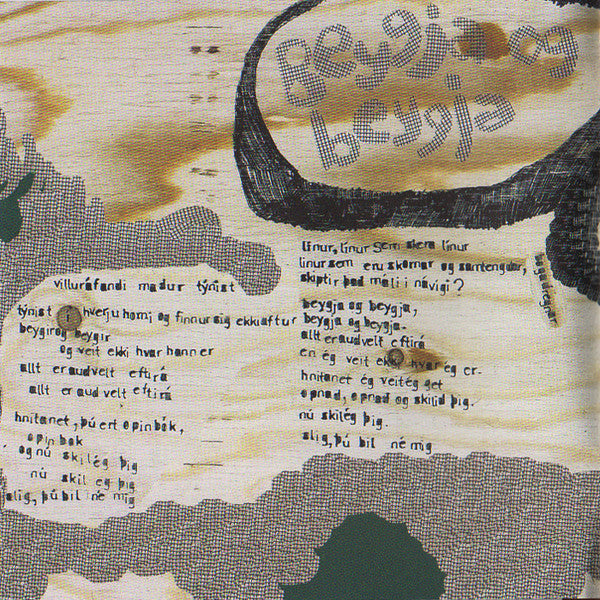 beygja og
beygja
villuráfandi maður týnist
týnist í hverju horni og finnur sig ekki aftur
beygir og beygir
og veit ekki hvar hann er
allt er auðvelt eftirá
allt er auðvelt eftirá
hnitanet, þú ert opin bók,
opin bók
og nú skil ég þig
nú skil ég þig
slig, þú bil né mig
línur, línur sem skera línur
línur sem eru skornar og samtengdar,
skiptir það máli í návígi?
beygja og beygja,
beygja og beygja.
allt er auðvelt eftirá
en ég veit ekki hvar ég er.
hnitanet ég veit ég get
opnað, opnað og skilið þig.
nú skil ég þig.
slig, þú bil né mig